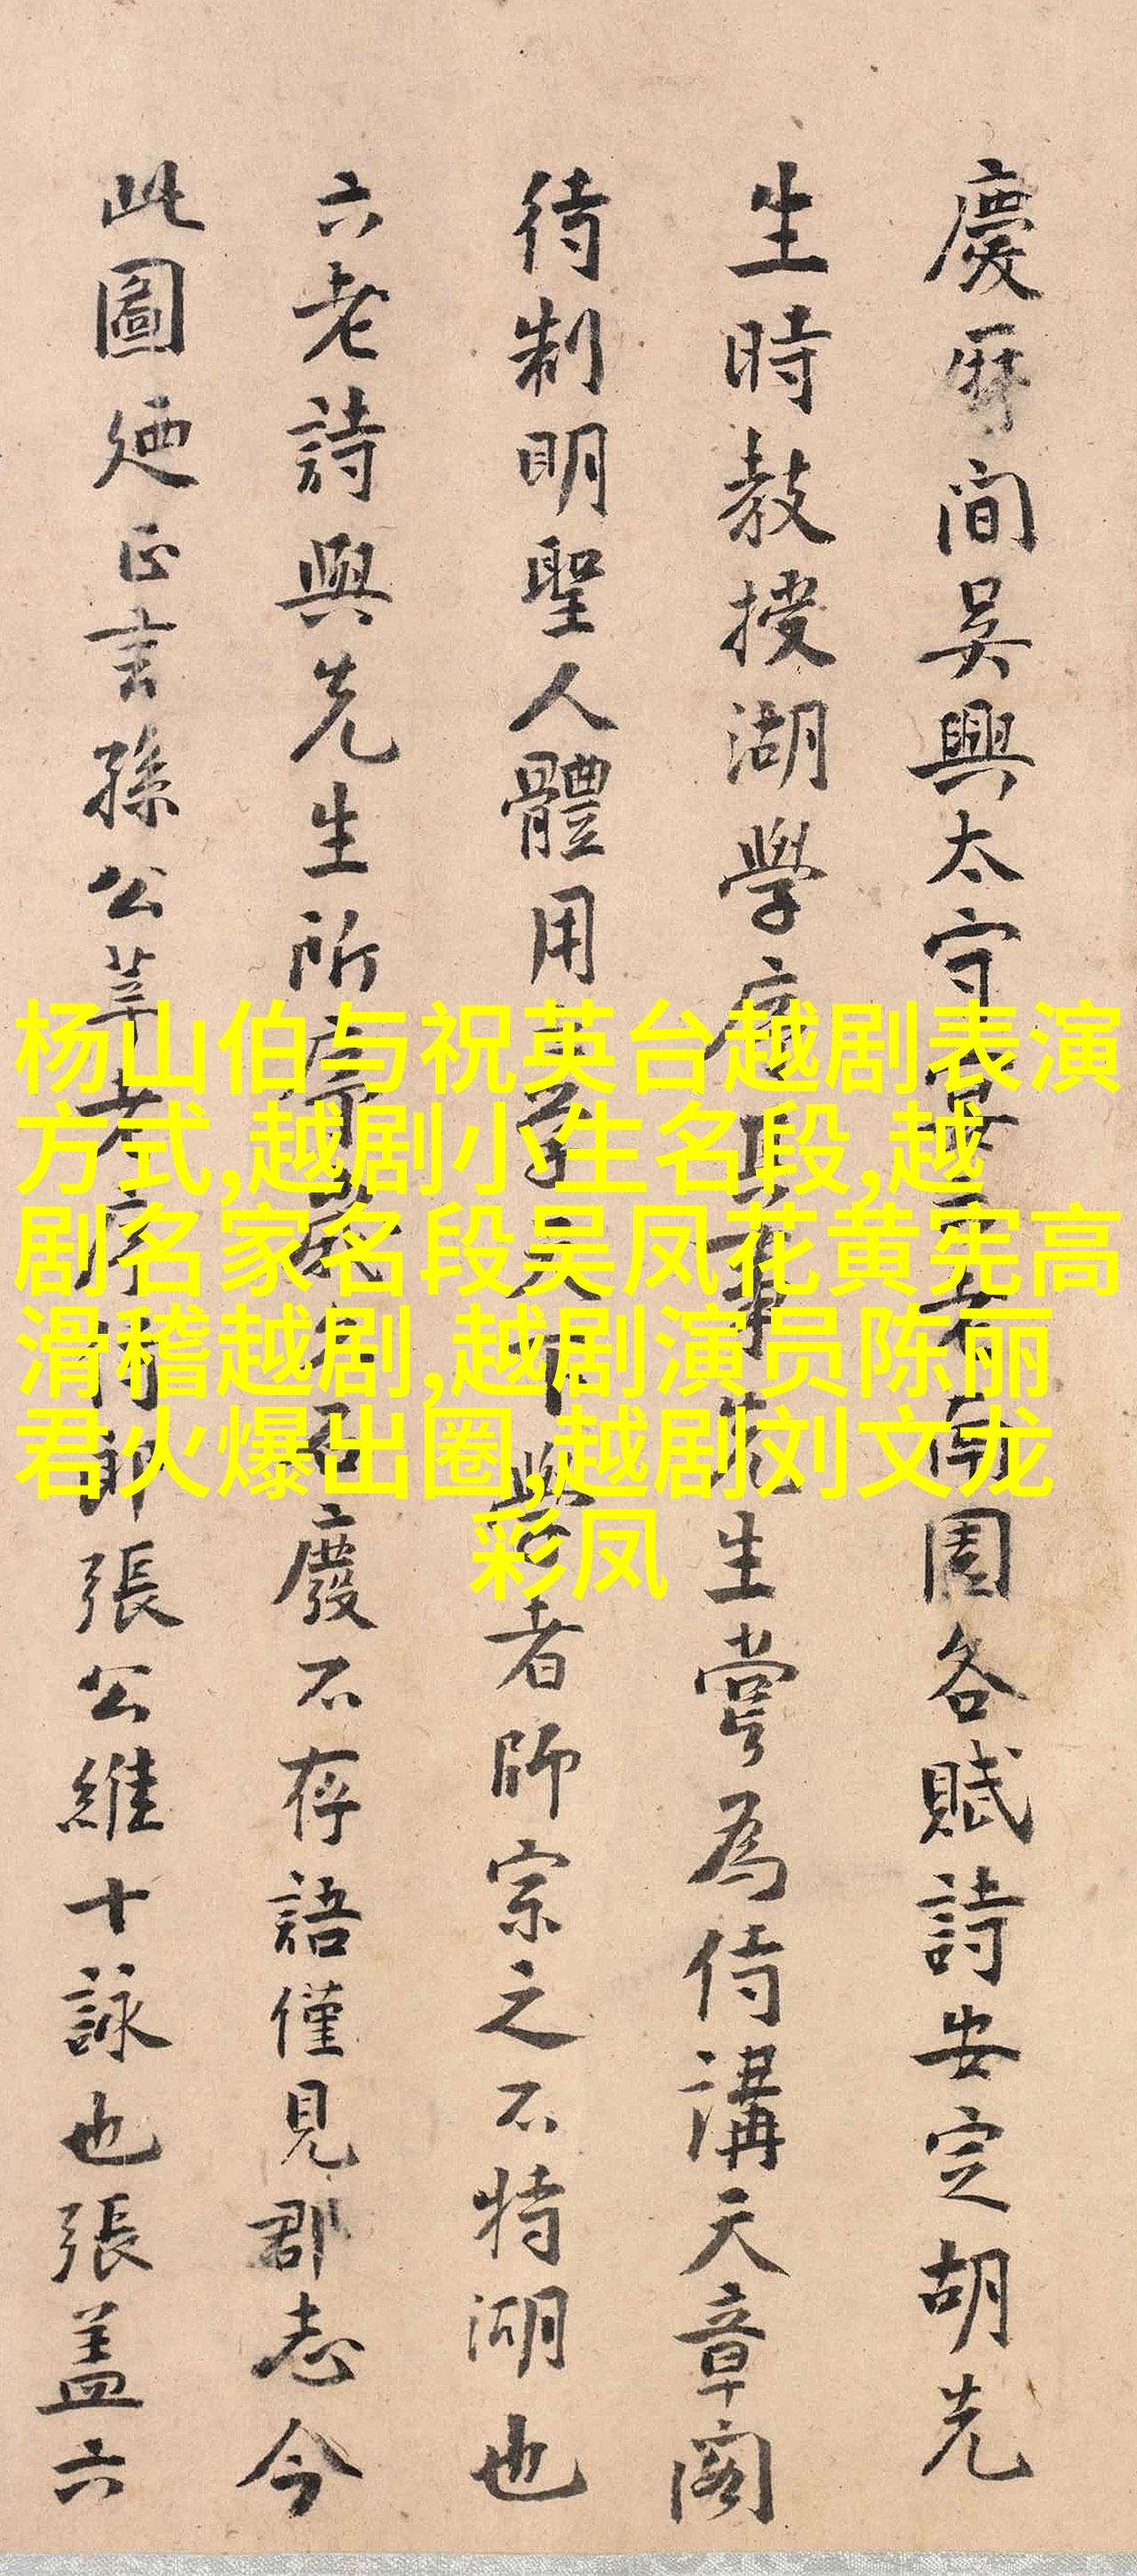 慶曆間吳興太守宴六老南園各賦詩安定胡先
生時教授湖學序其事先生嘗為侍講天章閣
待制明聖人體用之學天下學者師宗之不特湖也
六老詩與先生所序蓋石廢不存語僅見郡志今
此圖廼正言孫公莘老序侍郎張公維十詠也張蓋六
杨山伯与祝英台越剧表演
方式,越剧小生名段,越
剧名家名段吴凤花黄宪高
滑稽越剧,越剧演员陈丽
君火爆出圈,越剧刘文龙
彩凤